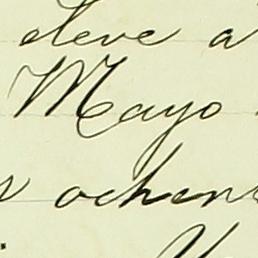 eleve a
Mayo
ochen